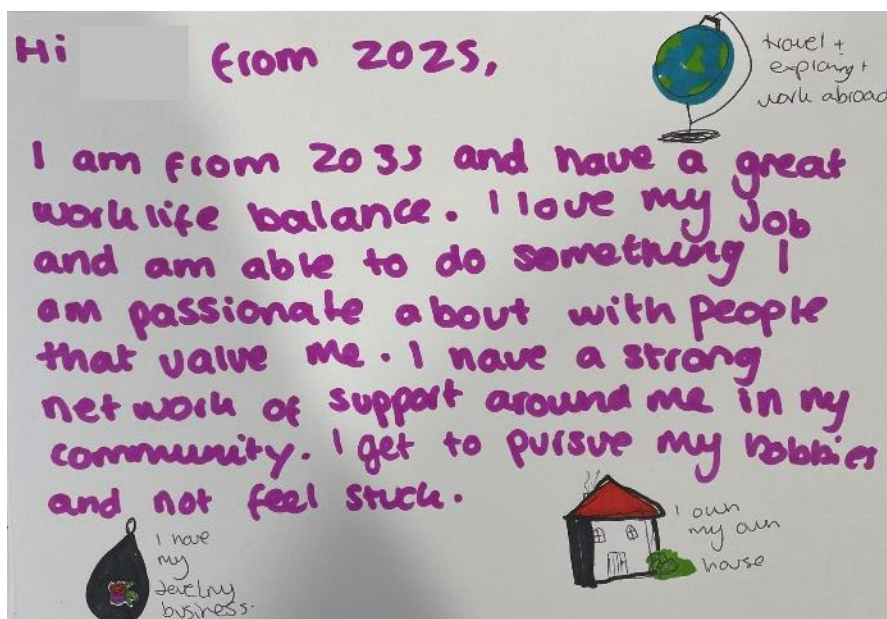 Hi from 2025,
travel +
exploring +
work abroad
I am from 2035 and have a great
work life balance. I love my Job
and am able to do something I
am passionate about with people
that value me. I have a strong
network of support around me in my
community. I get to pursue my hobbies
and not feel stuck.
I have
my
Jewelry
business.
I own
my own
house